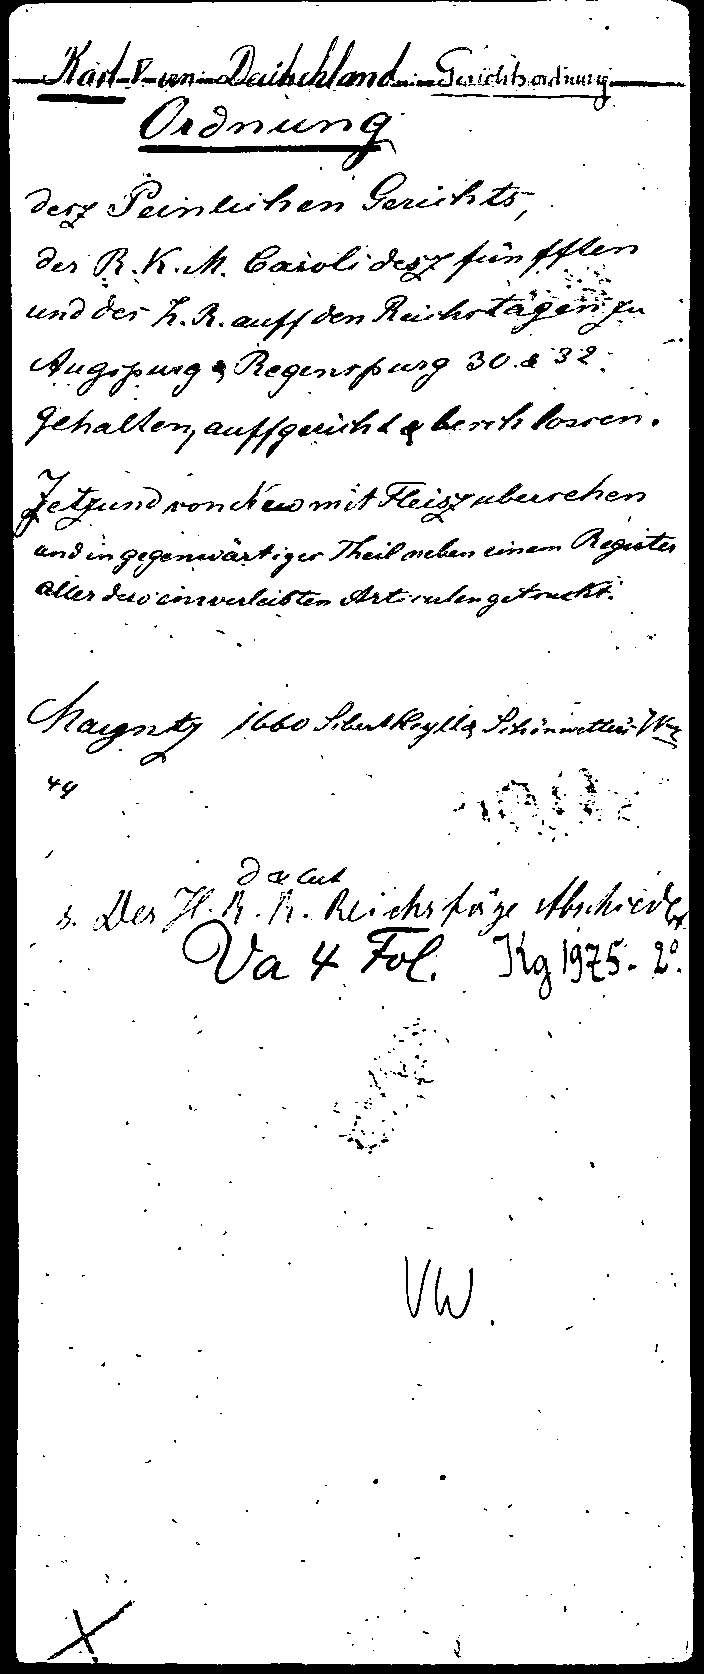 Karl V. von Deutschland. Gerichtsordnung
Ordnung
desz Peinlichen Gerichts,
der R. K. M. Caroli desz fünfften
und des H. R. auff den Reichstägen zu
Augspurg & Regenspurg 30 & 32.
gehalten, auffgericht & beschlossen.
Jetzund von New mit Fleisz ubersehen
und in gegenwärtiger Theil neben einem Register
aller dero einverleibten Articulen getruckt.
Mayntz 1660 Schönwetter
44
s. Des H. R. R. Reichstäge Abschiede
Va 4 Fol. Kg 1975. 2°.
VW.